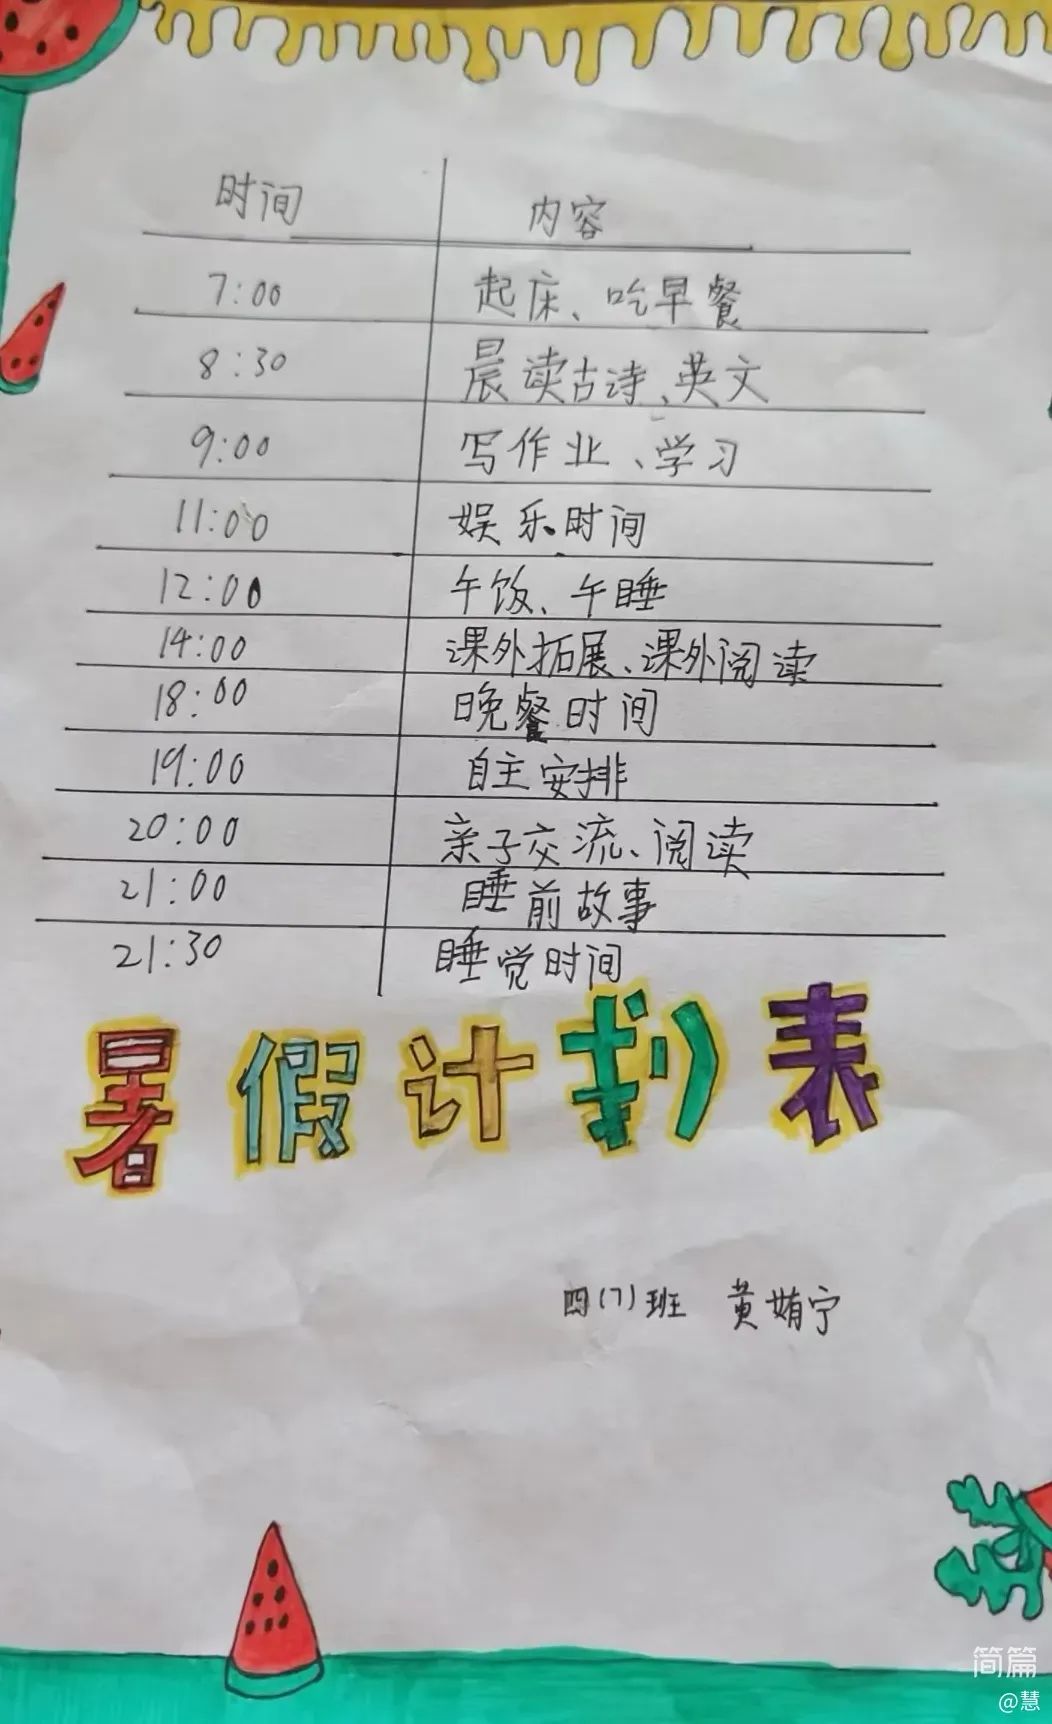 时间 内容
7:00 起床、吃早餐
8:30 晨读古诗、英文
9:00 写作业、学习
11:00 娱乐时间
12:00 午饭、午睡
14:00 课外拓展、课外阅读
18:00 晚餐时间
19:00 自主安排
20:00 亲子交流、阅读
21:00 睡前故事
21:30 睡觉时间
暑假计划表
四(7)班 黄姷宁
简篇
@慧